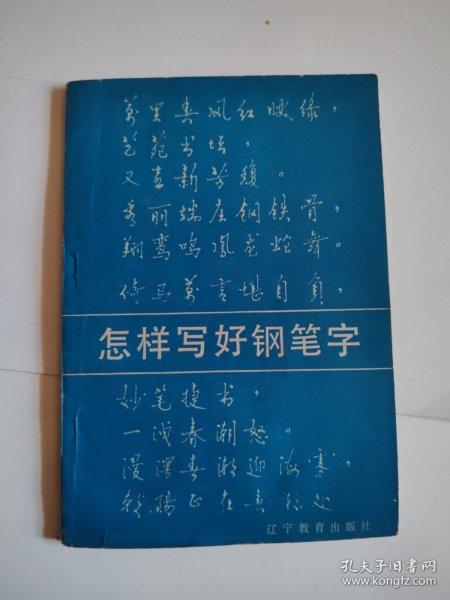 万里春风红映绿，
艺苑书坛，
又喜新芳馥。
秀丽端庄钢铁骨，
翔鸾鸣凤龙蛇舞。
倚马万言堪自负，
怎样写好钢笔字
妙笔捷书，
一代春潮怒。
漫泽春潮迎海寒，
骄阳正在
辽宁教育出版社
孔夫子旧书网
www.kongfz.com